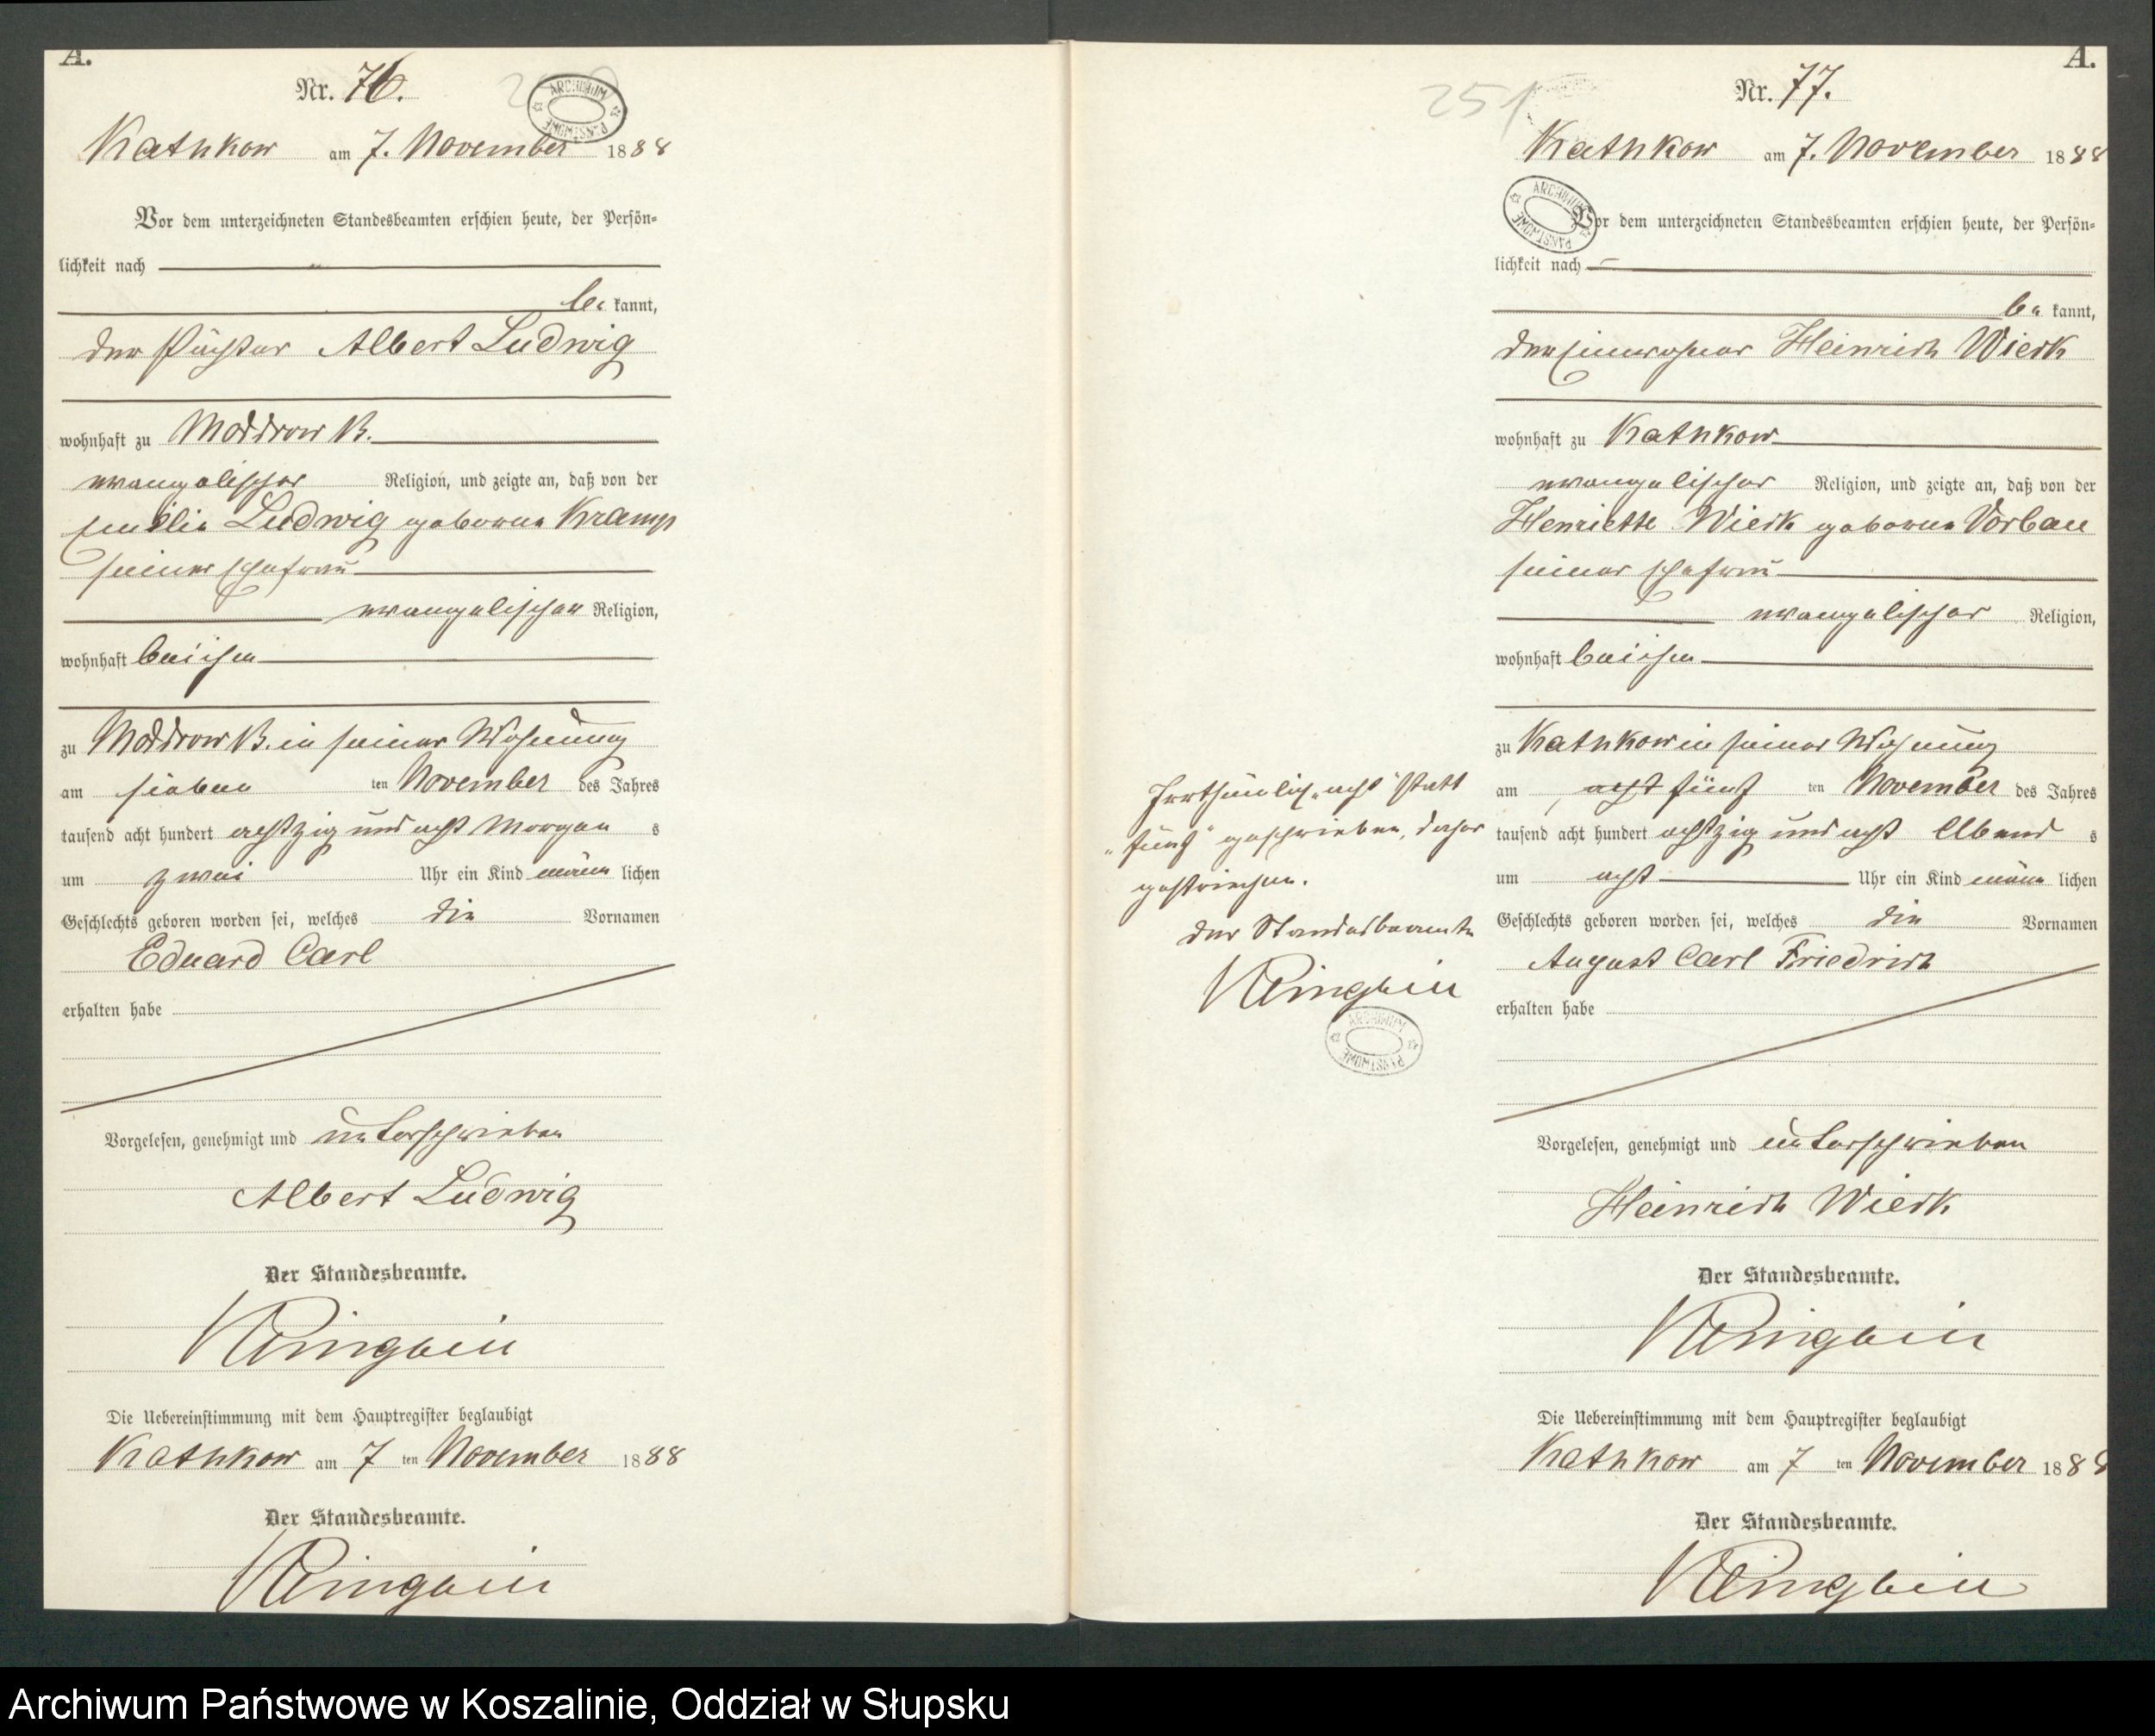 A.
Nr. 76.
Kathkow am 7. November 1888
Vor dem unterzeichneten Standesbeamten erschien heute, der Persön-
lichkeit nach
be kannt,
der Pächter Albert Ludwig
wohnhaft zu Moddrow B.
evangelischer Religion, und zeigte an, daß von der
Emilie Ludwig geborne Kramp
seiner Ehefrau
evangelischer Religion,
wohnhaft bei ihm
zu Moddrow B. in seiner Wohnung
am sieben ten November des Jahres
tausend acht hundert achtzig und acht Morgen s
um zwei Uhr ein Kind männ lichen
Geschlechts geboren worden sei, welches die Vornamen
Eduard Carl
erhalten habe
Vorgelesen, genehmigt und unterschrieben
Albert Ludwig
Der Standesbeamte.
Die Uebereinstimmung mit dem Hauptregister beglaubigt
Kathkow am 7 ten November 1888
Der Standesbeamte.
251
Irrthümlich „acht“ statt
„fünf“ geschrieben, daher
gestrichen.
Der Standesbeamte
ARCHIWUM PAŃSTWOWE
A.
Nr. 77.
Kathkow am 7. November 1888
Vor dem unterzeichneten Standesbeamten erschien heute, der Persön-
lichkeit nach
be kannt,
der Einwohner Heinrich Wierk
wohnhaft zu Kathkow
evangelischer Religion, und zeigte an, daß von der
Henriette Wierk geborne Vorbau
seiner Ehefrau
evangelischer Religion,
wohnhaft bei ihm
zu Kathkow in seiner Wohnung
am acht fünf ten November des Jahres
tausend acht hundert achtzig und acht Abend s
um acht Uhr ein Kind männ lichen
Geschlechts geboren worden sei, welches die Vornamen
August Carl Friedrich
erhalten habe
Vorgelesen, genehmigt und unterschrieben
Heinrich Wierk
Der Standesbeamte.
Die Uebereinstimmung mit dem Hauptregister beglaubigt
Kathkow am 7 ten November 1888
Der Standesbeamte.
Archiwum Państwowe w Koszalinie, Oddział w Słupsku